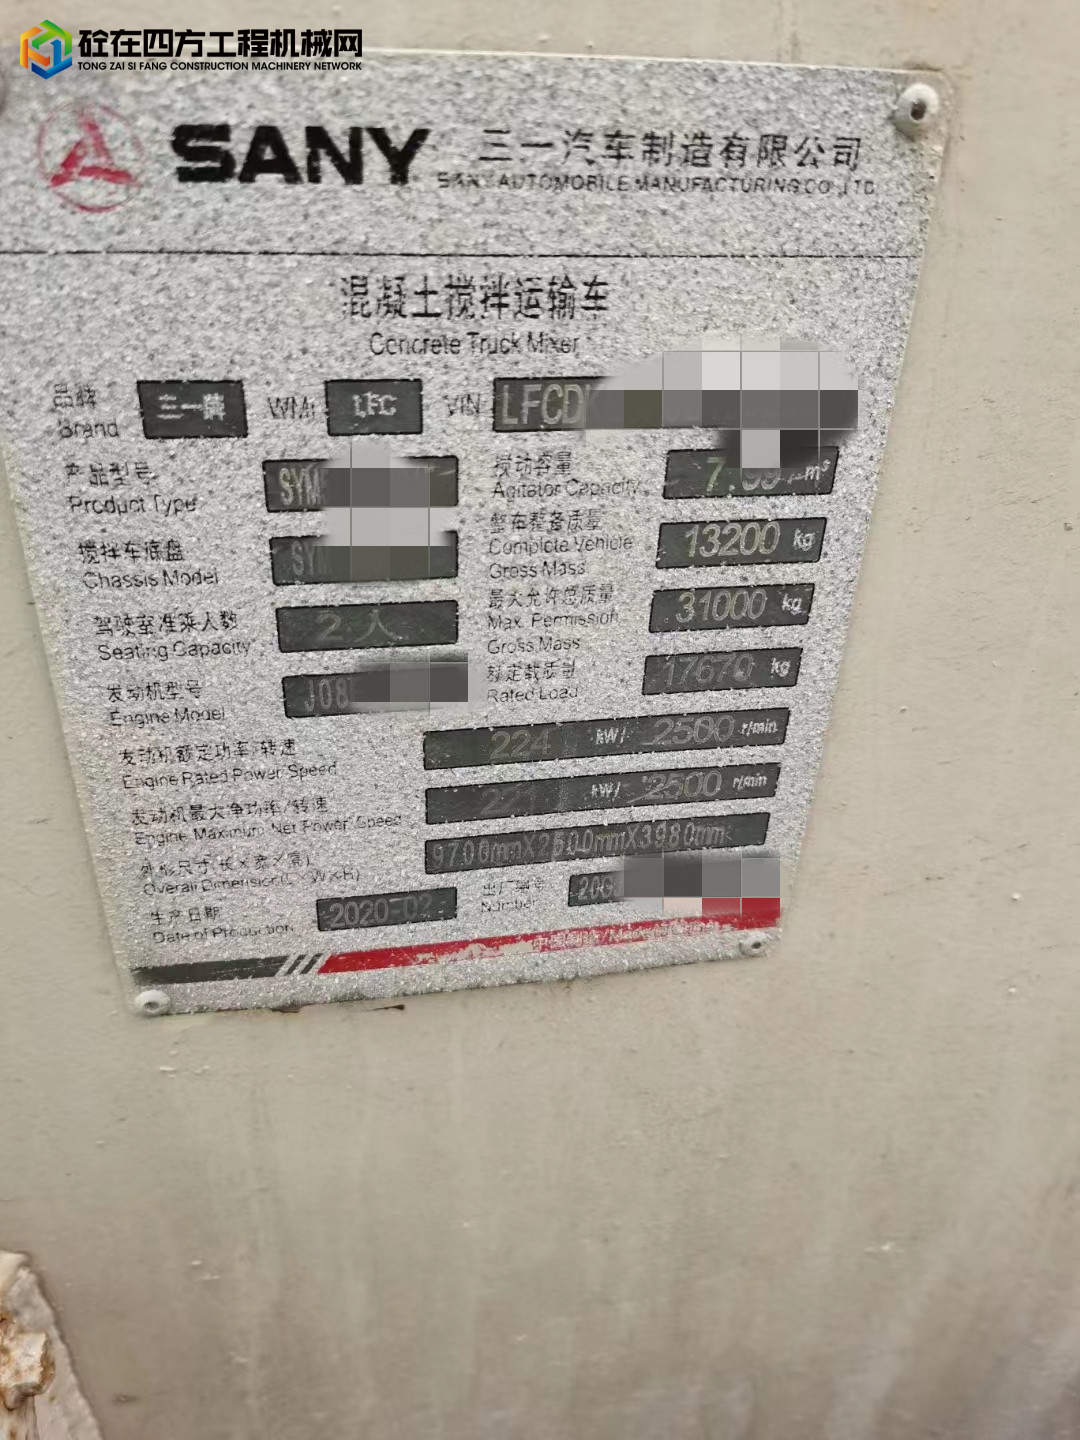 砼在四方工程机械网
TONG ZAI SI FANG CONSTRUCTION MACHINERY NETWORK
SANY 三一汽车制造有限公司
SANY AUTOMOBILE MANUFACTURING CO.,LTD
混凝土搅拌运输车
Concrete Truck Mixer
品牌 三一牌 WMI LFC VIN LFCD
Brand
产品型号 SYM 搅动容量 m³
Product Type Agitator Capacity
搅拌车底盘 SY 整车整备质量 13200 kg
Chassis Model Complete Vehicle
Gross Mass
驾驶室准乘人数 2 人 最大允许总质量 31000 kg
Seating Capacity Max. Permission
Gross Mass
发动机型号 J08 额定载质量 17670 kg
Engine Model Rated Load
发动机额定功率/转速 224 kW/ 2500 r/min
Engine Rated Power Speed
发动机最大净功率/转速 221 kW/ 2500 r/min
Engine Maximum Net Power Speed
外形尺寸(长×宽×高) 9700mmX2500mmX3980mm
Overall Dimension(L×W×H)
生产日期 2020-02 出厂编号 20G
Date of Production Number
中国制造/Made in China